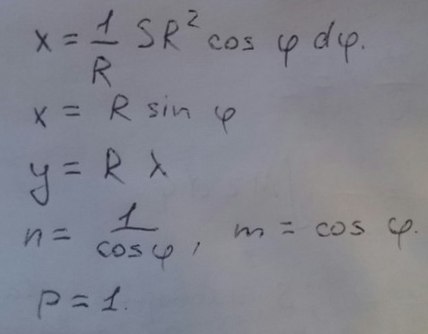 x = 1/R SR² cos φ dφ.
x = R sin φ
y = R λ
n = 1/cos φ, m = cos φ.
p = 1.